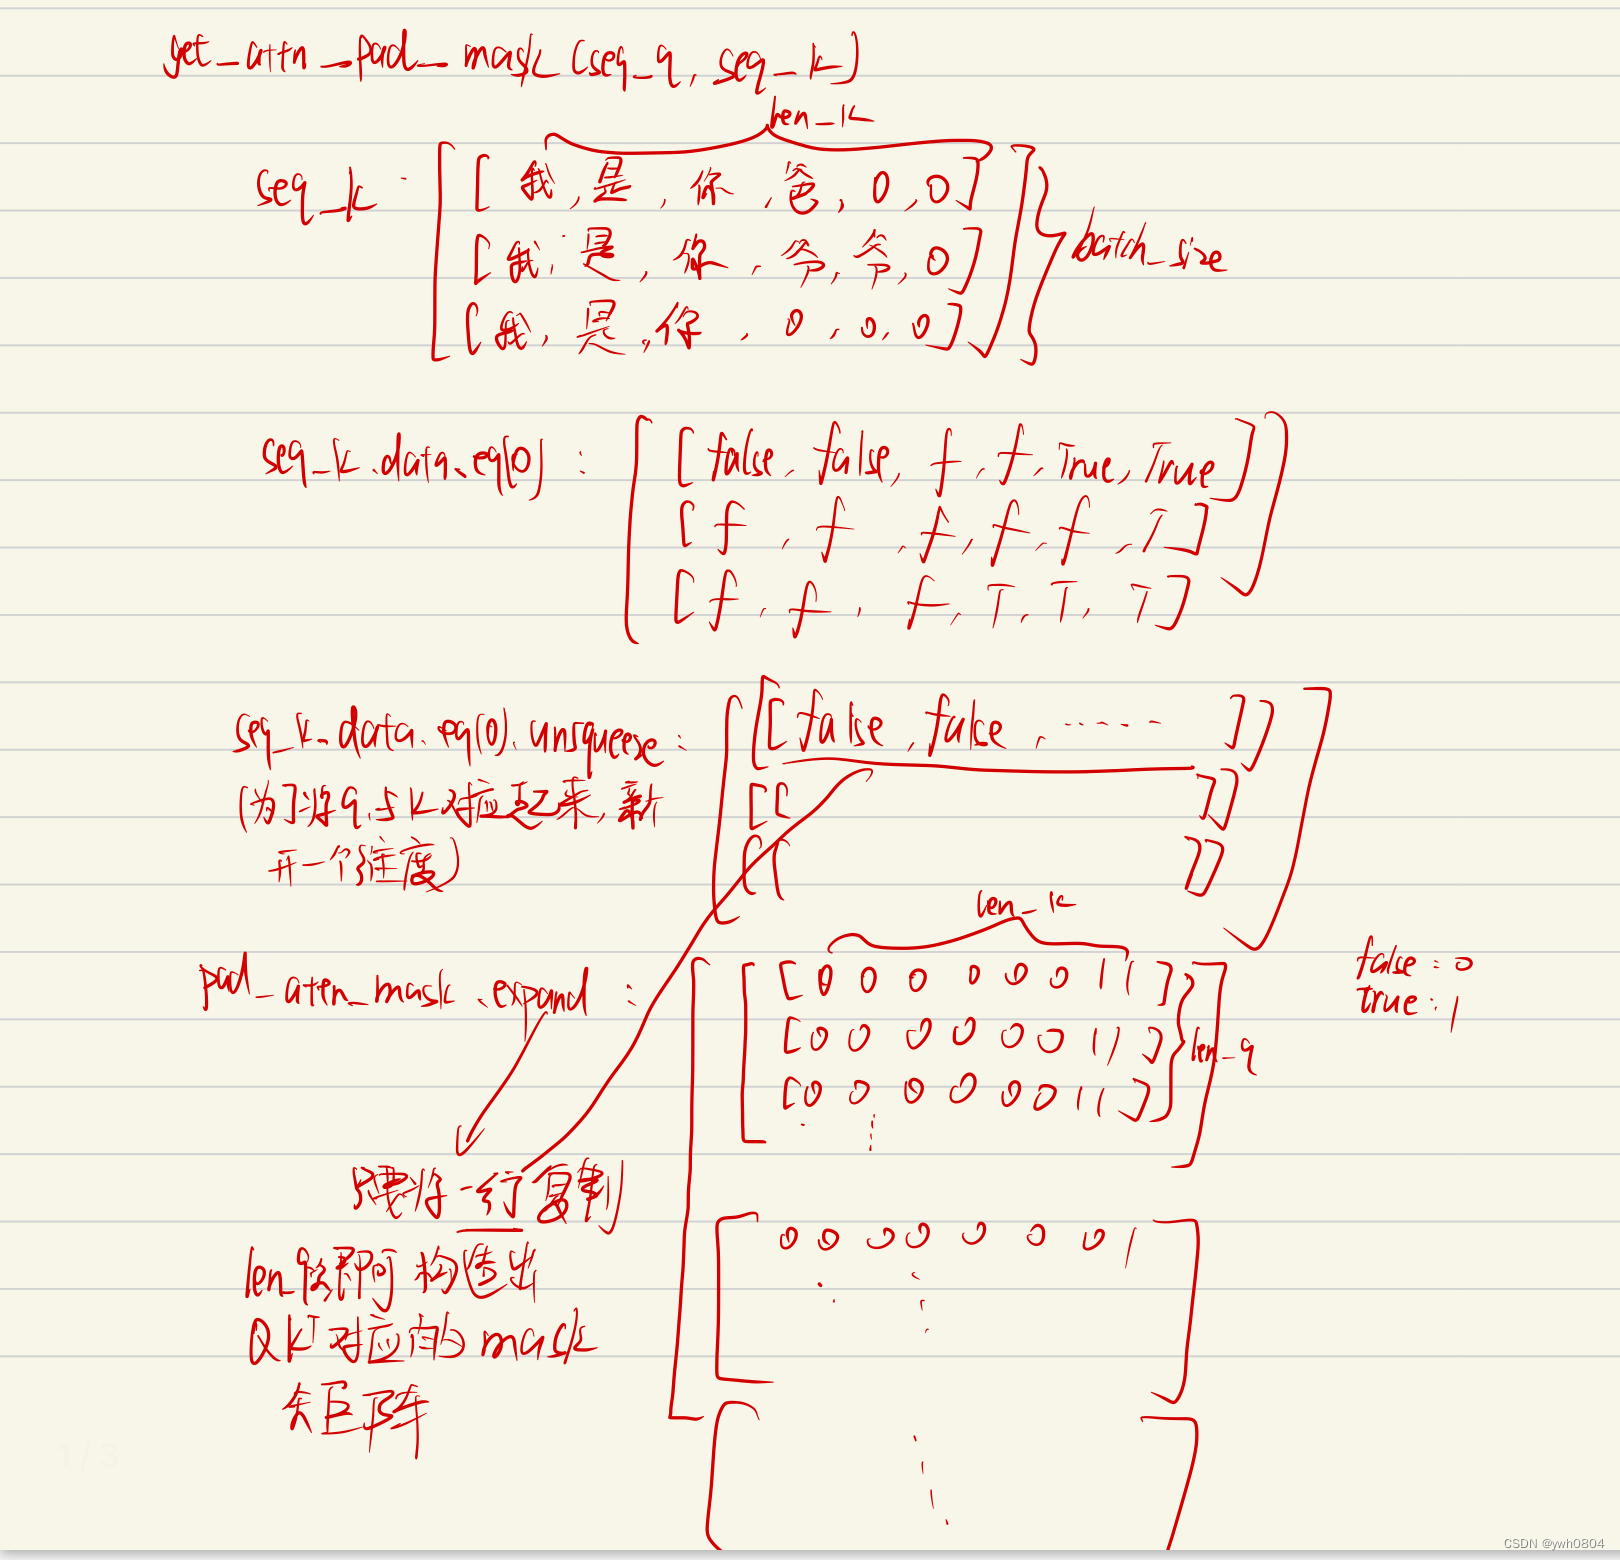 get_attn_pad_mask(seq_q, seq_k)
len_k
seq_k:
[[我,是,你,爸,0,0]
[我,是,你,爷,爷,0]
[我,是,你,0,0,0]]
batch_size
seq_k.data.eq(0):
[[false,false,f,f,True,True]
[f,f,f,f,f,T]
[f,f,f,T,T,T]]
seq_k.data.eq(0).unsqueeze:
[[[false,false,······]]
(为了将q与k对应起来,新
开一个维度)
[[ ]]
[[ ]]]
len_k
pad_aten_mask.expand:
[[[0 0 0 0 0 0 1 1]
[0 0 0 0 0 0 1 1]
[0 0 0 0 0 0 1 1]
len_q
false:0
true:1
只要将一行复制
len_q份即可构造出
QKT对应的mask
矩阵
[0 0 0 0 0 0 0 1
]
[ ]
1/3
CSDN @ywh0804